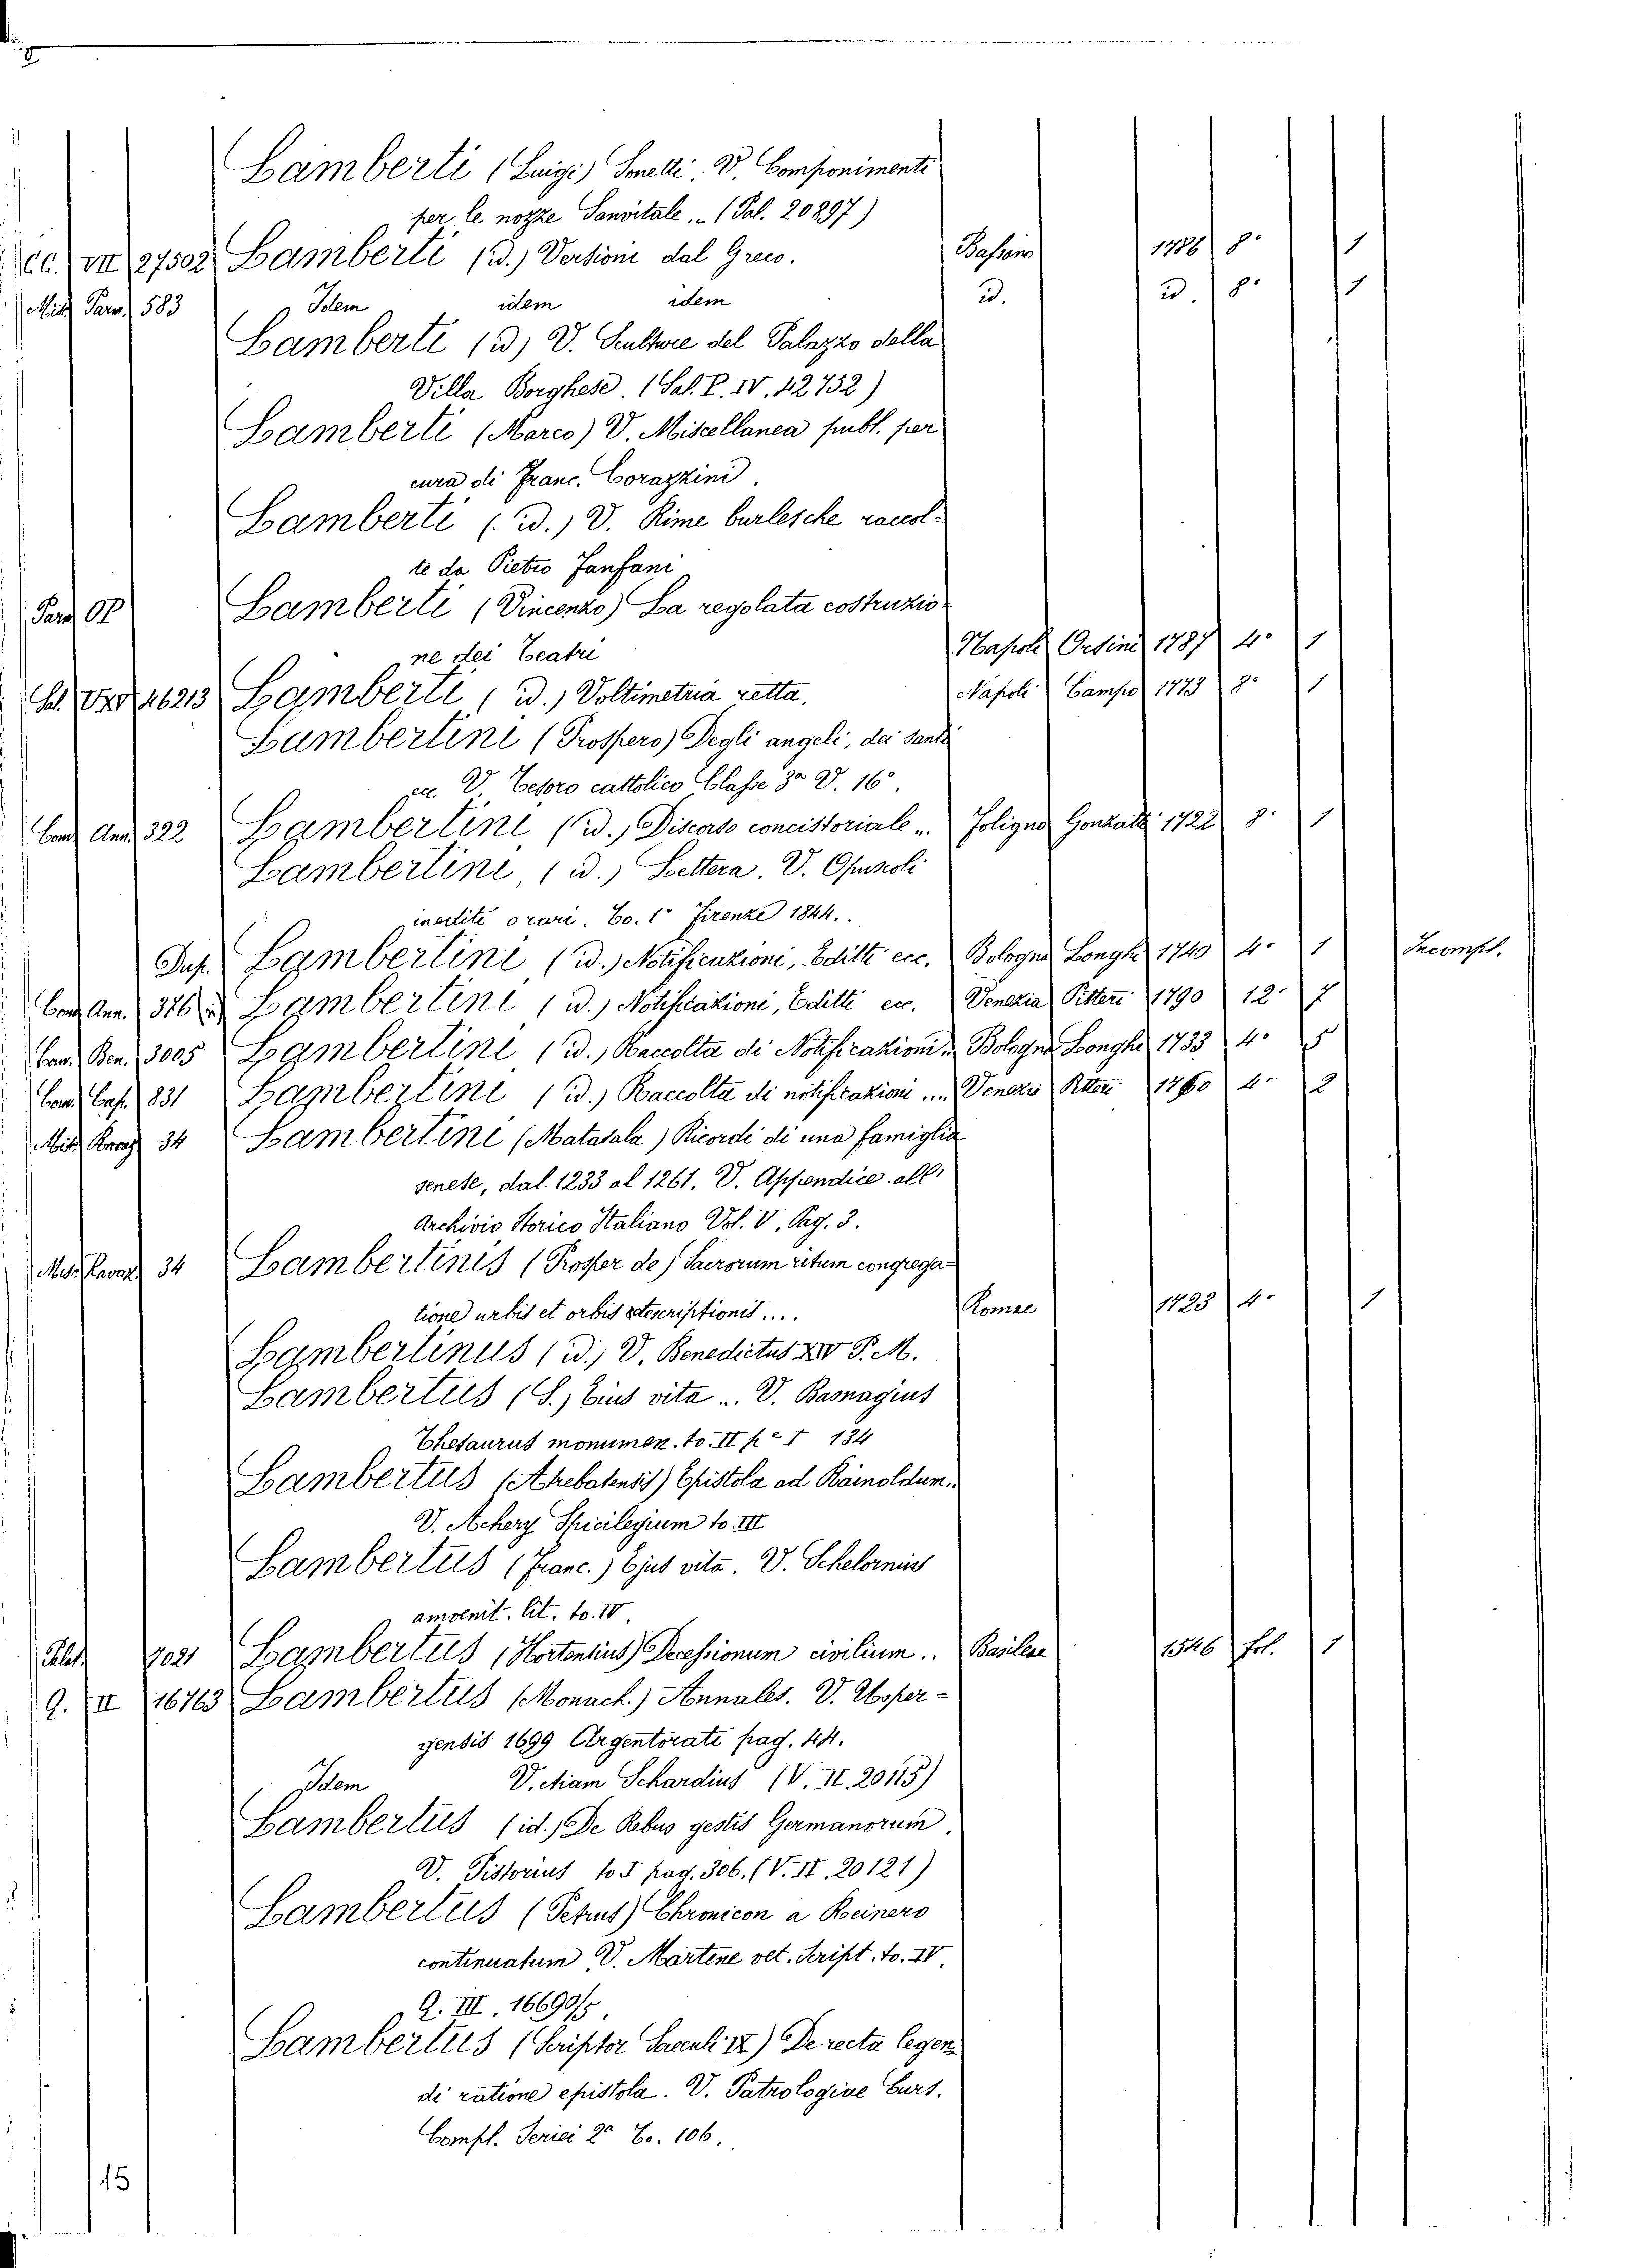 Lamberti (Luigi) Sonetti. V. Componimenti
per le nozze Sanvitale... (Pal. 20897)
CC. VII 27502 Lamberti (id.) Versioni dal Greco. Bassano 1786 8° 1
Misc. Parm. 583 Idem idem idem id. id. 8° 1
Lamberti (id) V. Sculture del Palazzo della
Villa Borghese. (Sal. P. IV. 12752)
Lamberti (Marco) V. Miscellanea pubbl. per
cura di Franc. Corazzini.
Lamberti (id.) V. Rime burlesche raccol-
te da Pietro Fanfani
Lamberti (Vincenzo) La regolata costruzio-
ne dei Teatri Napoli Orsini 1787 4° 1
46213 Lamberti (id.) Voltimetria retta. Napoli Campo 1773 8° 1
Lambertini (Prospero) Degli angeli, dei santi
ecc. V. Tesoro cattolico Classe 3a V. 16°.
Com. Ann. 322 Lambertini (id.) Discorso concistoriale... Foligno 1722 8° 1
Lambertini, (id.) Lettera. V. Opuscoli
inediti o rari. To. 1° Firenze 1844.
Dup. Lambertini (id.) Notificazioni, Editti ecc. Bologna Longhi 1740 4° 1 Incompl.
Com. Ann. 376 Lambertini (id.) Notificazioni, Editti ecc. Venezia Pitteri 1790 12° 7
Com. Ben. 3005 Lambertini (id.) Raccolta di Notificazioni... Bologna Longhi 1733 4° 5
Com. Cap. 831 Lambertini (id.) Raccolta di notificazioni ... Venezia Pitteri 1760 4° 2
Mis. 34 Lambertini (Matasala) Ricordi di una famiglia
senese, dal 1233 al 1261. V. Appendice all'
Archivio Storico Italiano Vol. V. Pag. 3.
34 Lambertinis (Prosper de) Sacrorum rituum congrega-
tione urbis et orbis descriptionis.... Romae 1723 4° 1
Lambertinus (id.) V. Benedictus XIV P. M.
Lambertus (S.) Eius vita ... V. Basnagius
Thesaurus monumen. to. II p.e I 134
Lambertus (Atrebatensis) Epistola ad Rainoldum.
V. Achery Spicilegium to. III
Lambertus (Franc.) Ejus vita. V. Schelornius
amoenit. lit. to. IV.
Palat. 7021 Lambertus (Hortensius) Secessionum civilium.. Basileae 1546 fol. 1
Q. II 16763 Lambertus (Monach.) Annales. V. Usper-
gensis 1699 Argentorati pag. 44.
Idem V. etiam Schardius (V. II. 20115)
Lambertus (id.) De Rebus gestis Germanorum.
V. Pistorius to I pag. 306. (V. II. 20121)
Lambertus (Petrus) Chronicon a Reinero
continuatum V. Martene vet. Script. to. IV.
Q. III. 16690/5.
Lambertus (Scriptor Saeculi IX) De recta legen-
di ratione epistola. V. Patrologiae Curs.
Compl. Seriei 2a To. 106.
15